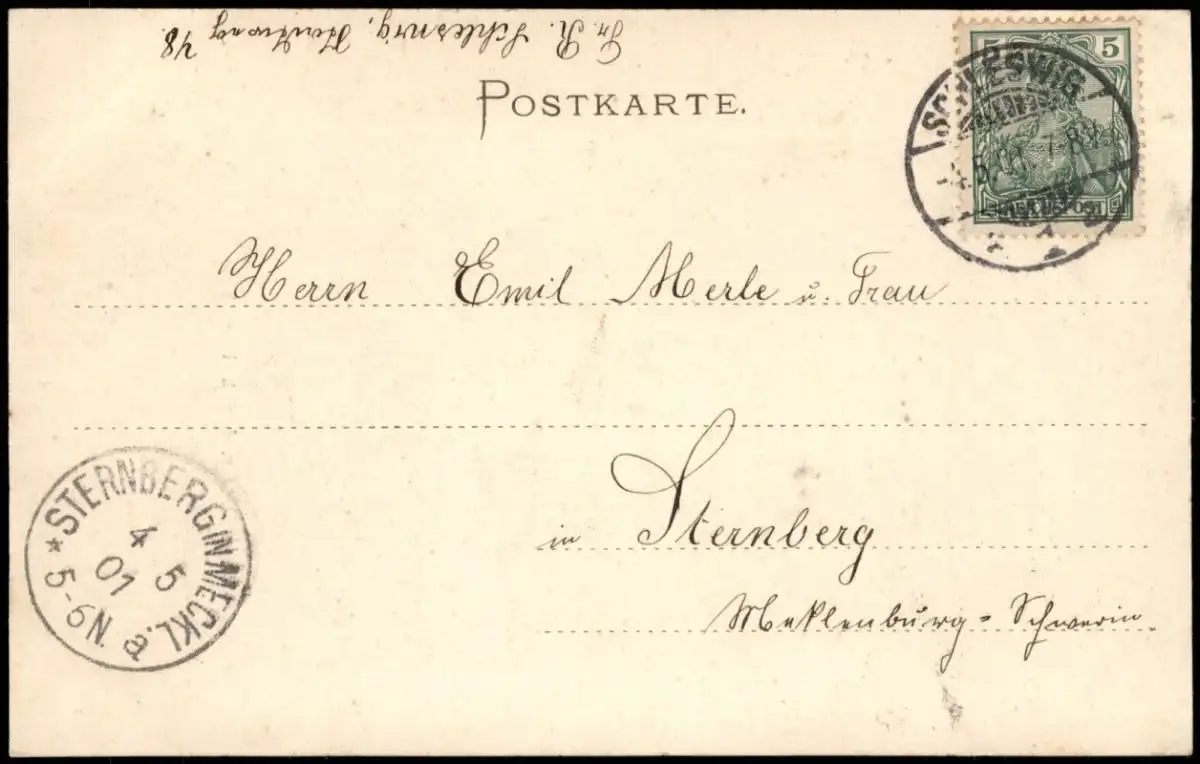 Schleswig, 48.
POSTKARTE.
5 5
SCHLESWIG
REICHSPOST
Herrn Emil Merle u. Frau
in Sternberg
Meklenburg-Schwerin.
* STERNBERG IN MECKL. *
4 5
01
5-6N.